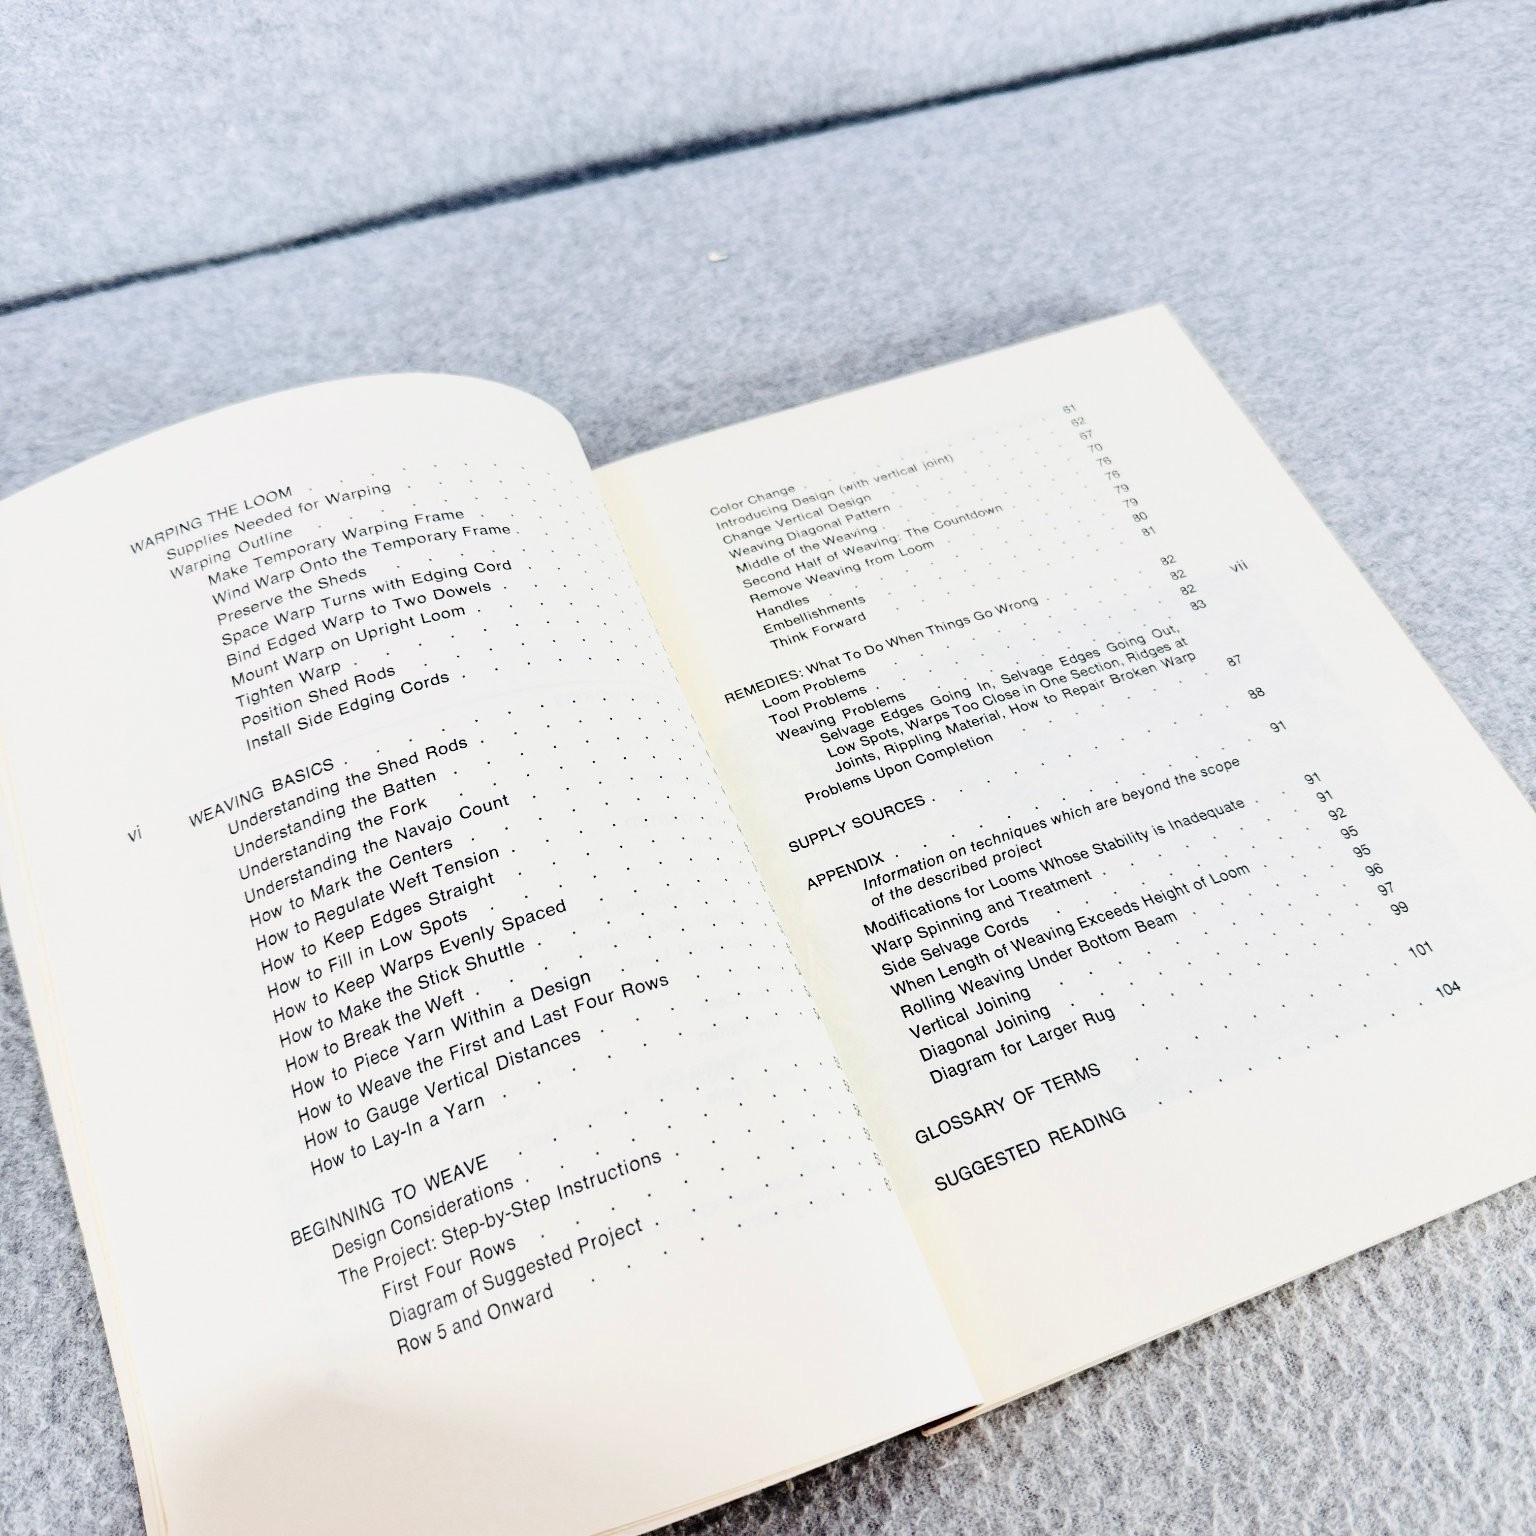 WARPING THE LOOM
Supplies Needed for Warping
Warping Outline
Make Temporary Warping Frame
Wind Warp Onto the Temporary Frame
Preserve the Sheds
Space Warp Turns with Edging Cord
Bind Edged Warp to Two Dowels
Mount Warp on Upright Loom
Tighten Warp
Position Shed Rods
Install Side Edging Cords
WEAVING BASICS
Understanding the Shed Rods
Understanding the Batten
Understanding the Fork
Understanding the Navajo Count
How to Mark the Centers
How to Regulate Weft Tension
How to Keep Edges Straight
How to Fill in Low Spots
How to Keep Warps Evenly Spaced
How to Make the Stick Shuttle
How to Break the Weft
How to Piece Yarn Within a Design
How to Weave the First and Last Four Rows
How to Gauge Vertical Distances
How to Lay-In a Yarn
BEGINNING TO WEAVE
Design Considerations
The Project: Step-by-Step Instructions
First Four Rows
Diagram of Suggested Project
Row 5 and Onward
vi
Color Change 61
Introducing Design (with vertical joint) 62
Change Vertical Design 67
Weaving Diagonal Pattern 70
Middle of the Weaving 76
Second Half of Weaving: The Countdown 76
Remove Weaving from Loom 79
Handles 79
Embellishments 80
Think Forward 81
REMEDIES: What To Do When Things Go Wrong 82
Loom Problems 82
Tool Problems 82
Weaving Problems 83
Selvage Edges Going In, Selvage Edges Going Out,
Low Spots, Warps Too Close in One Section, Ridges at
Joints, Rippling Material, How to Repair Broken Warp
Problems Upon Completion 87
SUPPLY SOURCES 88
APPENDIX 91
Information on techniques which are beyond the scope
of the described project
Modifications for Looms Whose Stability is Inadequate 91
Warp Spinning and Treatment 91
Side Selvage Cords 92
When Length of Weaving Exceeds Height of Loom 95
Rolling Weaving Under Bottom Beam 95
Vertical Joining 96
Diagonal Joining 97
Diagram for Larger Rug 99
GLOSSARY OF TERMS 101
SUGGESTED READING 104
vii